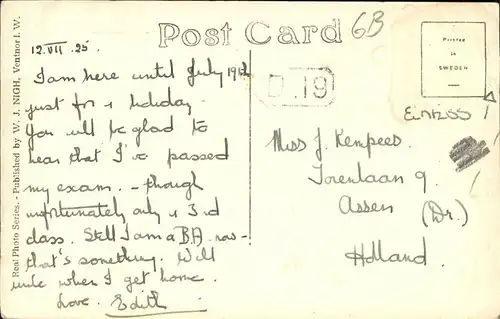 Post Card
6B
12.VII.25.
I am here until July 19th
just for a holiday.
You will be glad to
hear that I've passed
my exam. - though
unfortunately only a 3rd
class. Still I am a B.A. now -
that's something. Will
write when I get home.
Love. Edith
D.19
Printed
in
SWEDEN
Miss J. Kempees.
Torenlaan 9.
Assen
(Dr.)
Holland.
Real Photo Series. - Published by W. J. NIGH, Ventnor I. W.